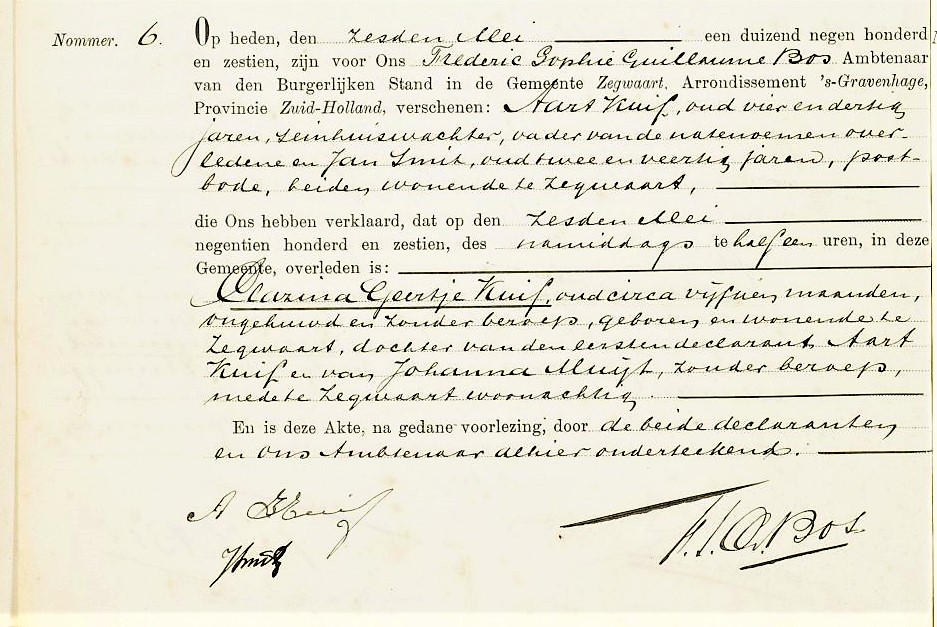 Nommer. 6. Op heden, den zesden Mei een duizend negen honderd
en zestien, zijn voor Ons Frederic Sophie Guillaume Bos Ambtenaar
van den Burgerlijken Stand in de Gemeente Zegwaart, Arrondissement 's-Gravenhage,
Provincie Zuid-Holland, verschenen: Aart Kuif, oud vier en dertig
jaren, seinhuiswachter, vader van de natenoemen over-
ledene en Jan Smit, oud twee en veertig jaren, post-
bode, beiden wonende te Zegwaart,
die Ons hebben verklaard, dat op den zesden Mei
negentien honderd en zestien, des namiddags te half een uren, in deze
Gemeente, overleden is:
Clazina Geertje Kuif, oud circa vijftien maanden,
ongehuwd en zonder beroep, geboren en wonende te
Zegwaart, dochter van den eersten declarant Aart
Kuif en van Johanna Muijt, zonder beroep,
mede te Zegwaart woonachtig.
En is deze Akte, na gedane voorlezing, door de beide declaranten
en Ons Ambtenaar alhier onderteekend.
A Kuif
JSmit
F.S.G. Bos